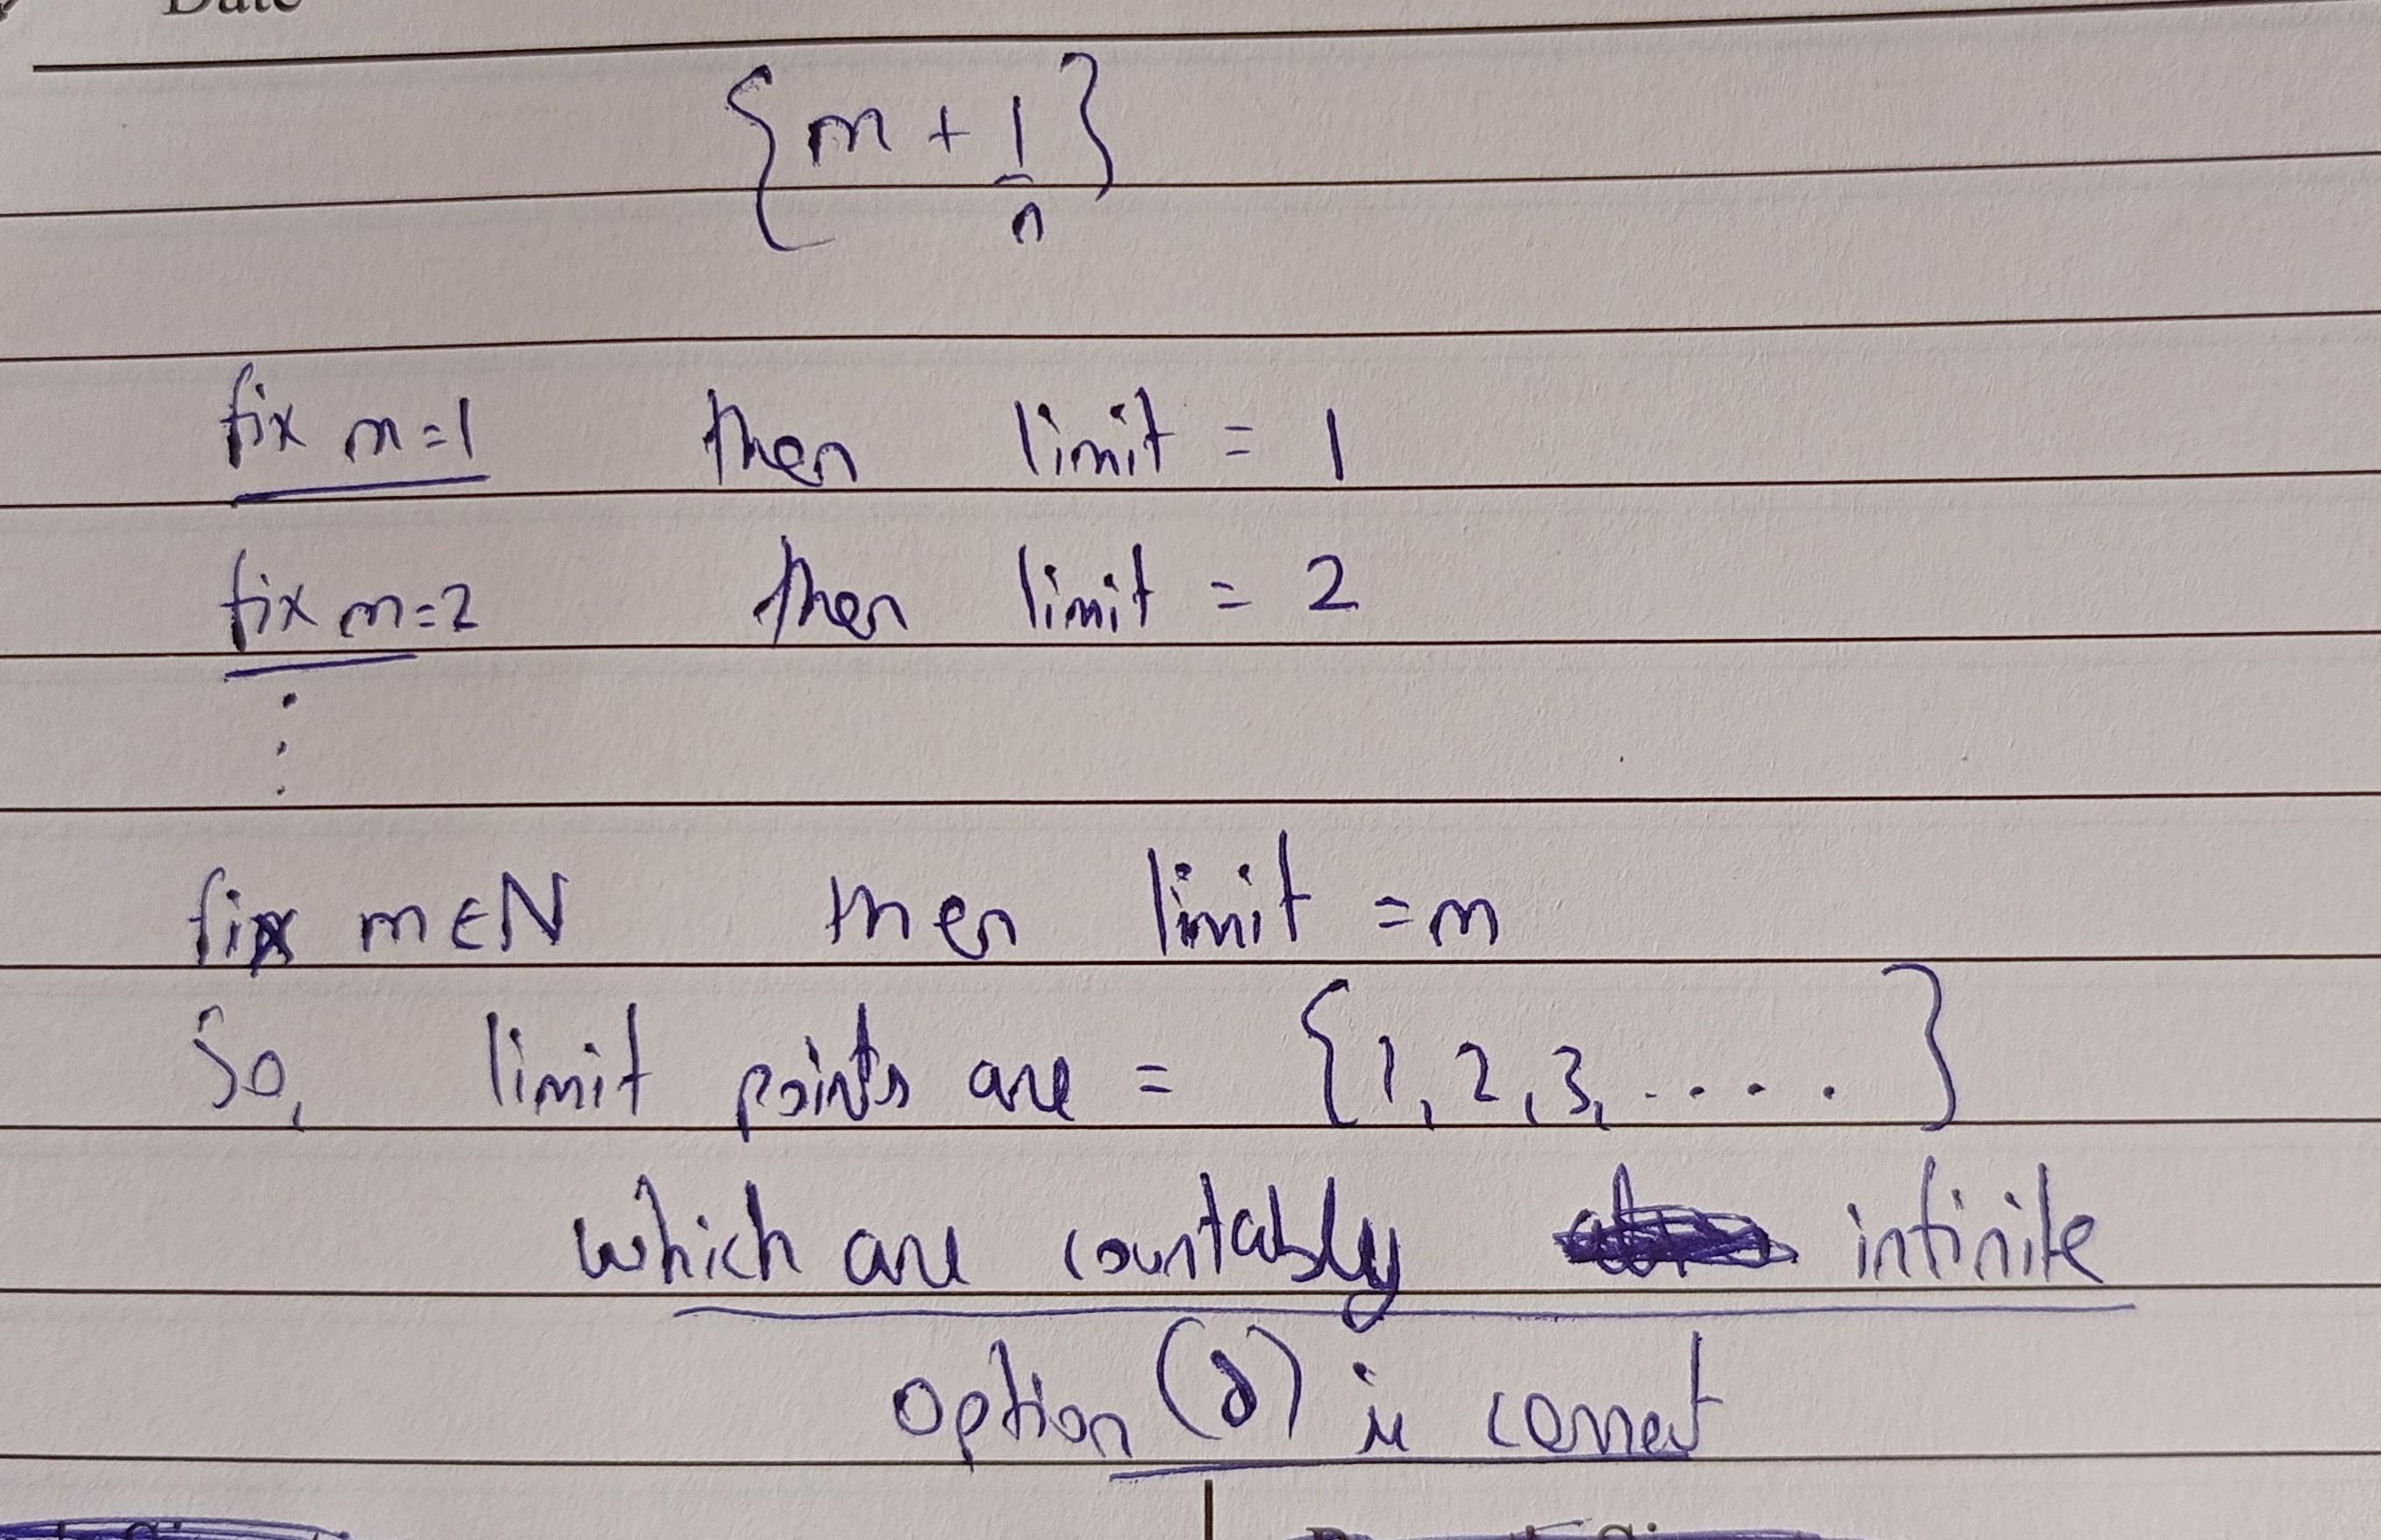 Date
{m + 1/n}
fix m=1 then limit = 1
fix m=2 then limit = 2
⋮
fix m∈N then limit = m
So, limit points are = {1, 2, 3, .....}
which are countably infinite
option (d) is correct